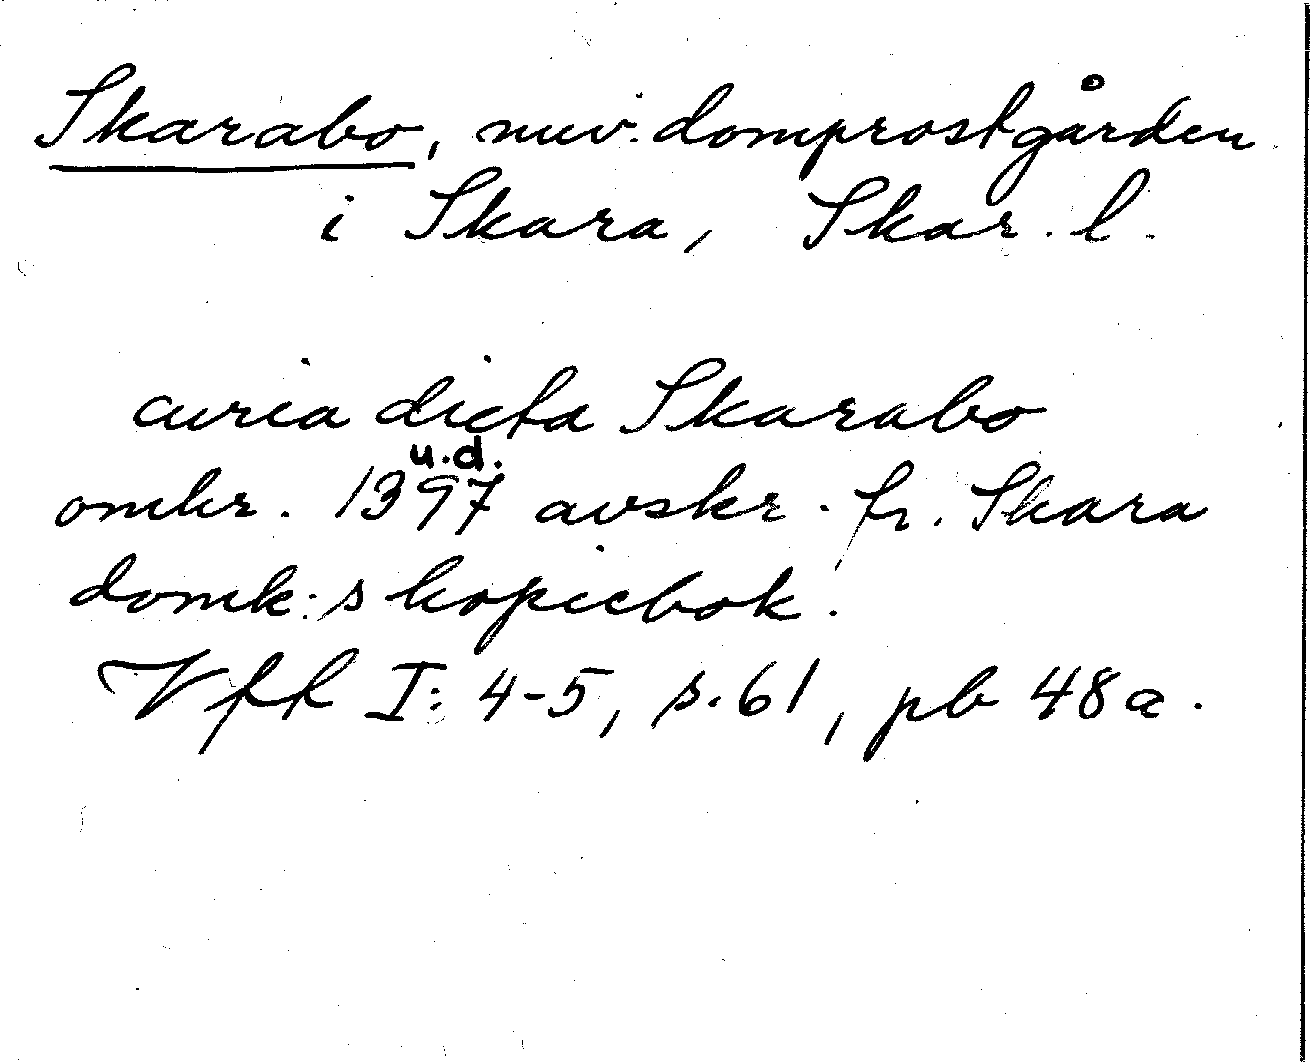 Skarabo, nuv. domprostgården
i Skara, Skar. l.
curia dicta Skarabo
u.d.
omkr. 1397 avskr. fr. Skara
domk:s kopiebok.
Vff I: 4-5, s. 61, pb 48a.